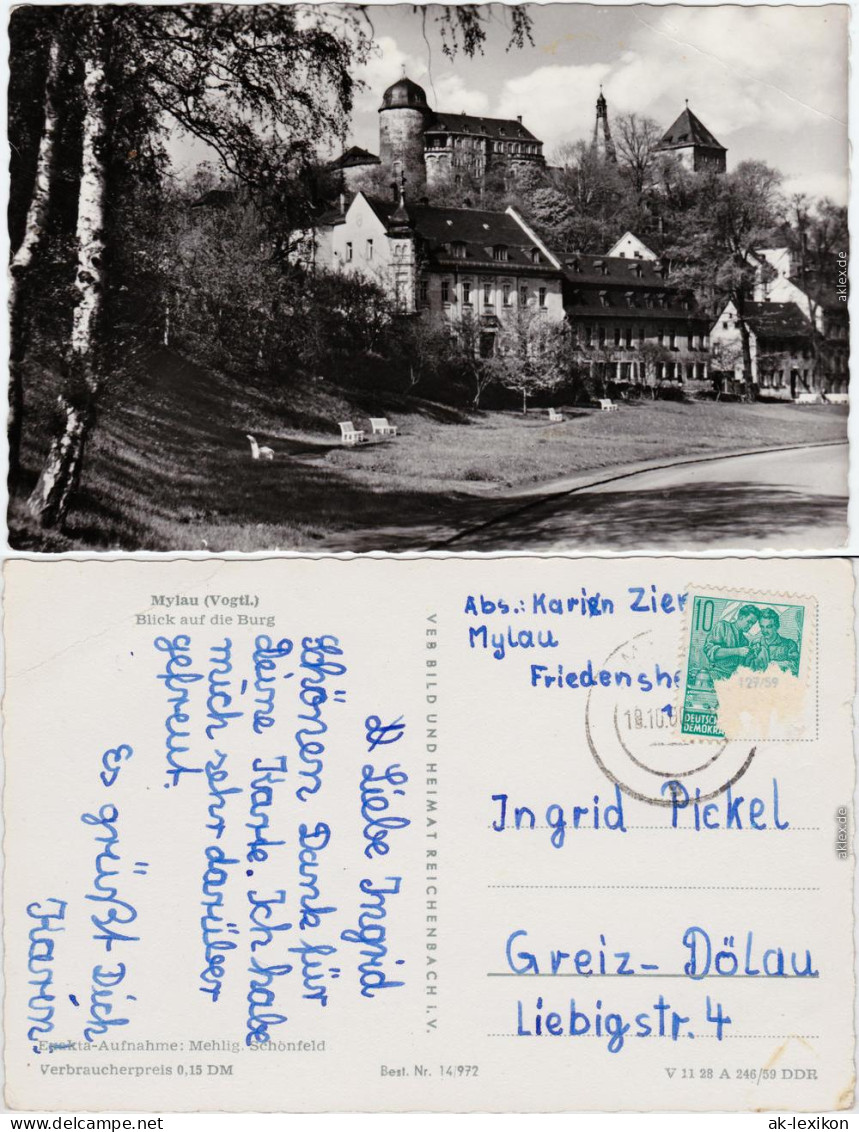 aklex.de
Mylau (Vogtl.)
Blick auf die Burg
Liebe Ingrid
schönen Dank für
deine Karte. Ich habe
mich sehr darüber
gefreut.
Es grüßt Dich
Karen.
Exakta-Aufnahme: Mehlig, Schönfeld
Verbraucherpreis 0,15 DM
Best. Nr. 14/972
VEB BILD UND HEIMAT REICHENBACH i. V.
Abs.: Karin Zier
Mylau
Friedensh
10
127/59
DEUTSCH
DEMOKRA
Ingrid Pickel
Greiz-Dölau
Liebigstr. 4
V 11 28 A 246/59 DDR
aklex.de
www.ansichtskarten-lexikon.de
ak-lexikon